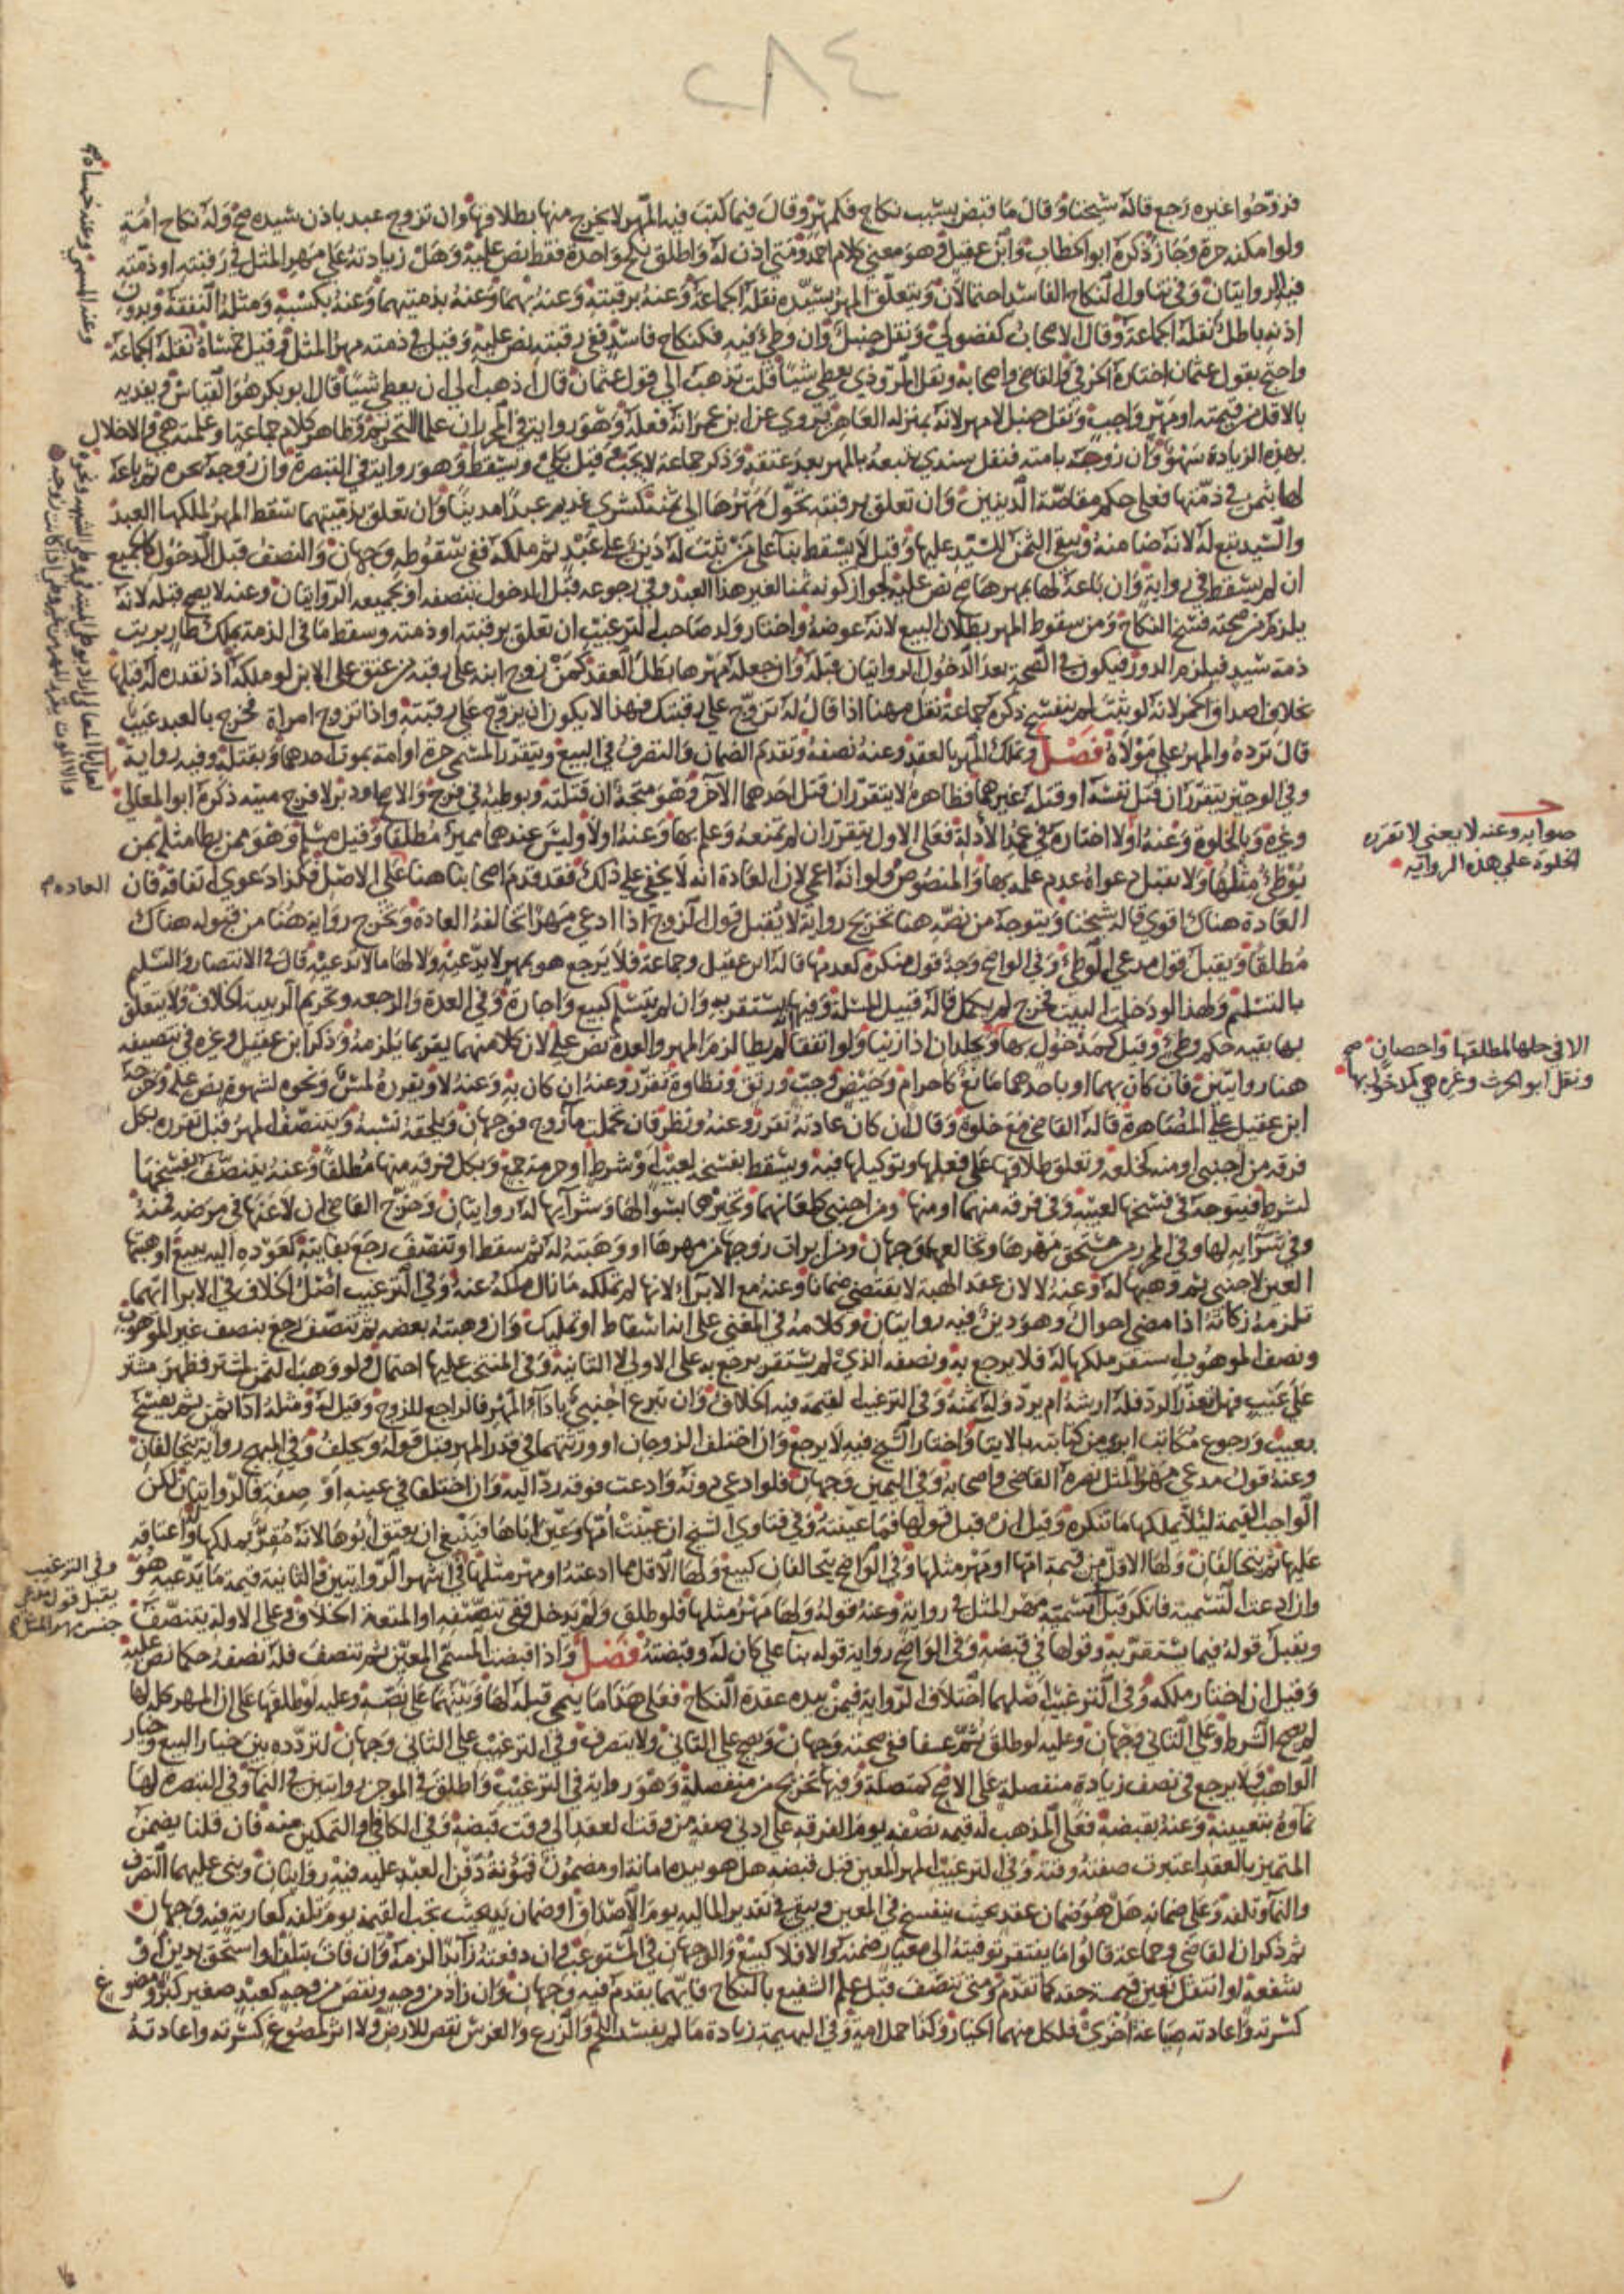 ٢٨٤
فزوجوا غيره رجع قاله شيخنا وقال ما قبض بسبب نكاح فكمهر وقال فيما كتب فيه المهر لا يخرج منها بطلاقها وان تزوج عبد باذن سيده صح وله نكاح امة
ولو امكنه حرة وجاز ذكره ابو الخطاب وابن عقيل وهو معنى كلام احمد ومتى اذن له واطلق نكح واحدة فقط نص عليه وهل زيادته على مهر المثل في رقبته او ذمته
فيه الروايتان وفي تناول النكاح الفاسد احتمالان ويتعلق المهر بسيده نقله الجماعة وعنه برقبته وعنه بهما وعنه بذمتيهما وعنه بكسبه ومثله النفقة وبدون
اذنه باطل نقله الجماعة وقال الاصحاب كفضولي ونقل حنبل وان وطئ فيه فكنكاح فاسد ففي رقبته نص عليه وقيل في ذمته مهر المثل وقيل خمساه نقله الجماعة
واحتج بقول عثمان اختاره الخرقي والقاضي واصحابه ونقل المروذي يعطي شيئا قلت تذهب الى قول عثمان قال اذهب الى ان يعطي شيئا قال ابو بكر هو القياس ويفديه
بالاقل من قيمته او مهر واجب ونقل حنبل لا مهر لانه بمنزله العاهر يروى عن ابن عمر انه فعله وهو رواية في المحرر ان علما التحريم وظاهر كلام جماعة او علمته هي والاخلال
بهذه الزيادة سهو وان زوجه بامته فنقل سندي يتبعه بالمهر بعد عتقه وذكر جماعة لا يجب وقيل بلى ويسقط وهو رواية في التبصرة وان زوجه بحره ثم باعه
لها بثمن في ذمتها فعلى حكم مقاصة الدينين وان تعلق برقبته تحول مهرها الى ثمنه كشرى غريم عبدا مدينا وان تعلق بذمتيهما سقط المهر لملكها العبد
والسيد تبع له لانه ضامنه ويبقى الثمن للسيد عليها وقيل لا يسقط بناء على من ثبت له دين على عبد ثم ملكه ففي سقوطه وجهان والنصف قبل الدخول كالجميع
ان لم يسقط في رواية وان باعه لها بمهرها صح نص عليه لجواز كونه ثمنا لغير هذا العبد وفي رجوعه قبل الدخول بنصفه او بجميعه الروايتان وعنه لا يصح قبله لانه
يلزم من صحته فسخ النكاح ومن سقوط المهر بطلان البيع لانه عوضه واختار ولد صاحب الترغيب ان تعلق برقبته او ذمته وسقط ما في الذمة بملك طار برئت
ذمة سيد فيلزم الدور فيكون في الصحة بعد الدخول الروايتان قبله وان جعله مهرها بطل العقد كمن زوج ابنه على رقبة من عتق على الابن لو ملكه اذ نقدره له قبلها
بخلاف اصداق الخمر لانه لو ثبت لم ينفسخ ذكره جماعة نقل مهنا اذا قال له تزوج على رقبتك فهذا لا يكون ان يزوج على رقبته واذا تزوج امراة فخرج بالعبد عيب
قال ترده والمهر على مولاه فصل وتملك المهر بالعقد وعنه نصفه وتقدم الضمان والتصرف في البيع ويتقرر المسمى حرة او امة بموت احدهما وبقتله وفيه رواية
وفي الوجيز يتقرر ان قتل نفسه او قتله غيرهما فظاهره لا يتقرر ان قتل احدهما الآخر وهو متجه ان قتلته وبوطئه في فرج والاصح ودبر لا فرج ميته ذكره ابو المعالي
وغيره وبالخلوة وعنه اولا اختاره في عمد الادلة فعلى الاول يتقرر ان لم تمنعه وعلم بها وعنه اولا وليس عندهما مميز مطلقا وقيل مسلم وهو ممن يطا مثله بمن
يوطئ مثلها ولا تقبل دعواه عدم علمه بها والمنصوص ولو انه اعمى لان العادة انه لا يخفى عليه ذلك فقد قدم اصحابنا هنا على الاصل فكذا دعوى انفاقه فان
العادة هناك اقوى قاله شيخنا ويتوجه من نصه هنا تخريج رواية لا يقبل قول الزوج اذا ادعى مهرا تخالفه العادة وتخرج رواية هنا من قبوله هناك
مطلقا ويقبل قول مدعي الوطئ وفي الواضح وجه قول منكره كعدمها قاله ابن عقيل وجماعة فلا يرجع هو بمهر لا يدعيه ولا لها ما لا تدعيه قال في الانتصار والتسليم
بالتسليم ولهذا لو دخلت البيت فخرج لم يكمل قاله قبيل المسلة وفيها يستقر به وان لم يتسلم كبيع واجارة وفي العدة والرجعه وتحريم الربيبة الخلاف ولا يتعلق
بها بقيه حكم وطئ وقيل كمدخول بها ويجلدان اذا زنيا ولو اتفقا لم يطا لزم المهر والعدة نص عليه لان كلا منهما يقر بما يلزمه وذكر ابن عقيل وغيره في تنصيفه
هنا روايتين فان كان بهما او باحدهما مانع كاحرام وحيض وجب ورتق ونظاوه تقرر وعنه ان كان به وعنه لا ويقرره لمس ونحوه لشهوة نص عليه وخرجه
ابن عقيل على المصاهرة قاله القاضي مع خلوة وقال ان كان عادته تقرر وعنه ونظر فان تحملت ماء زوج فوجهان ويلحقه نسبه ويتنصف المهر قبل تقرره بكل
فرقه من اجنبي او منه كخلعه وتعلق طلاقها على فعلها وتوكيلها فيه ويسقط بفسخه لعيب او شرط او حرمة جمع وبكل فرقه منها مطلقا وعنه يتنصف بفسخها
لشرط فيتوجه في فسخها لعيبه وفي فرقه منهما او منها ومن اجنبي كلعانهما وتخييرها بسؤالها وشرائها له روايتان وخرج القاضي ان لاعنها في مرضه فمنه
العين لاجنبي ثم وهبها له وعنه لا لان عقد الهبة لا يقتضي ضمانا وعنه مع الابراء لانها لم تملكه ما نال ملكه عنه وفي الترغيب اصل الخلاف في الابرا انهما
تلزمه زكاته اذا مضى احوال وهو دين فيه روايتان وكلامه في المغني على انه اسقاط او تمليك وان وهبته بعضه ثم تنصف رجع بنصف غير الموهوب
ونصف الموهوب استقر ملكها له فلا يرجع به ونصفه الذي لم يستقر يرجع به على الاولى لا الثانية وفي المنتخب عليها احتمال ولو وهب الثمن لمشتر فظهر مشتر
على عيب فهل بعد الرد فله ارشه ام يرد وله ثمنه وفي الترغيب القيمة فيه الخلاف وان تبرع اجنبي باداء المهر فالراجع للزوج وقيل له ومثله اداء ثمن ثم يفسخ
بعيب ورجوع مكاتب ابرئ من كتابته بالايتاء واختار الشيخ فيه لا يرجع وان اختلف الزوجان او ورثتهما في قدر المهر قبل قوله ويحلف وفي المبهج رواية يتحالفان
وعنه قول مدعي مهر المثل نصره القاضي واصحابه وفي اليمين وجهان فلو ادعى دونه وادعت فوقه رد اليه وان اختلفا في عينه او صفته فالروايتان لكن
الواجب القيمة لئلا يملكها ما تنكره وقيل ان قبل قولها فما عينته وفي فتاوى الشيخ ان عينت امها وعين اباها فينبغي ان يعتق ابوها لانه مقر بملكها واعتاقه
عليها ثم يتحالفان ولها الاقل من قيمة امها او مهر مثلها وفي الواضح يتحالفان كبيع ولها الاقل مما ادعته او مهر مثلها في اشهر الروايتين والثانية قيمة ما يدعيه هو
وان ادعت التسمية فانكر قبل تسمية مهر المثل في رواية وعنه قوله ولها مهر مثلها فلو طلق ولم يدخل ففي تنصفه او المتعة الخلاف وعلى الاولة يتنصف
ويقبل قوله فيما يستقر به وقولها في قبضه وفي الواضح رواية قوله بناء على كان له وقبضته فصل واذا قبضت المسمى المعين ثم تنصف فله نصفه حكما نص عليه
وقيل ان اختار ملكه وفي الترغيب اصلهما اختلاف الرواية فيمن بيده عقدة النكاح فعلى هذا ما ينمى قبله لها وبينهما على نصه وعليه لو طلقها على ان المهر كله لها
لم يصح الشرط وعلى الثاني وجهان وعليه لو طلق ثم عفا ففي صحته وجهان ويصح على الثاني ولا يتصرف وفي الترغيب على الثاني وجهان لتردده بين خيار البيع وخيار
الواهب ولا يرجع في نصف زيادة منفصلة على الاصح كمتصلة وفيها تخريج من منفصلة وهو رواية في الترغيب واطلق في الموجز روايتين في النما وفي التبصرة لها
نماؤه بتعيينه وعنه بقبضه فعلى المذهب له قيمة نصفه يوم الفرقة على ادنى صفة من وقت العقد الى وقت قبضه وفي الكافي او التمكين منه فان قلنا يضمن
المتميز بالعقد اعتبرت صفته وقته وفي الترغيب المهر المعين قبل قبضه هل هو بيده امانة او مضمون فمؤنة دفن العبد عليه فيه روايتان وبنى عليهما التصرف
والنماء وتلفه وعلى ضمانه هل هو ضمان عقد بحيث ينفسخ في المعين ويبقى في تقدير المالية يوم الاصداق او ضمان يد بحيث تجب القيمة يوم تلفه كعارية فيه وجهان
ثم ذكر ان القاضي وجماعة قالوا ما يفتقر توفيته الى معيار ضمنه والا فلا كبيع والوجهان في المستوعب وان دفعته زائدا لزمه وان فات بتلف او استحق بدين او
شفعة لو انتقل تعين قيمة حقه كما تقدم ومتى تنصف قبل علم الشفيع بالنكاح فايهما يقدم فيه وجهان وان زاد من وجه ونقص من وجه كعبد صغير كبر ومصوغ
كسرته واعادته صياغة اخرى فلكل منهما الخيار وكذا حمل امة وفي البهيمة زيادة ما لم يفسد اللحم والزرع والغرس نقص للارض ولا اثر لمصوغ كسرته واعادته
صوابه وعنه لا يعني لا تقرره
الخلوة على هذه الرواية
الا في حلها لمطلقها واحصان صح
ونقل ابو الحرث وغيره هي كمدخول بها
العادة م
وفي الترغيب
يقبل قول مدعي
جنس مهر المثل